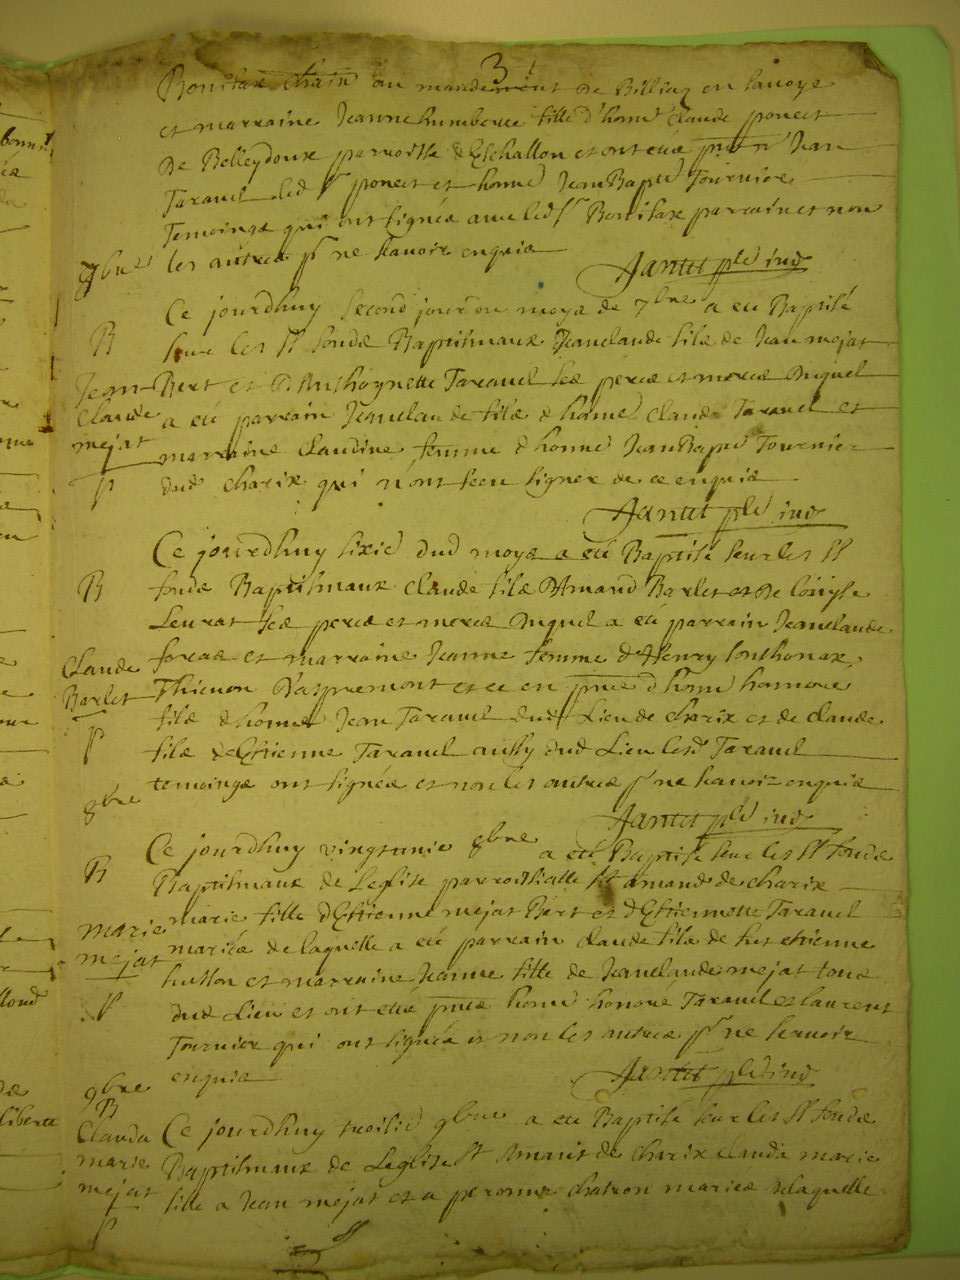 3
Bonifax chrain au mandement de Billiaz en savoye
et marraine Jeanne humberte fille d'honné Claude poncet
De Belleydoux parroisse d'Eschallon et ont etée pnts Jean
Taravel led sr poncet et honné JeanBapte Tournier
Temoings qui ont signés avec led sr Bonifax parrain et non
les autres pr ne scavoir enquis
Jantet ptre ind
7bre
Ce jourdhuy second jour du moys de 7bre a eté Baptisé
B
sur les sts fonds Baptismaux Jeanclaude fils de Jean mejat
Jean
Claude
mejat
Bert et D'Anthoynette Taravel ses peres et meres Duquel
a eté parrain Jeanclaude fils d honné Claude Taravel et
marraine Claudine femme d honné JeanBapte Tournier
dud charix qui n'ont sceu signer de ce enquis
Jantet ptre ind
Ce jourdhuy sixie dud moys a eté Baptisé sur les sts
B
fonds Baptismaux Claude fils D'Amand Barlet et De
Leurat ses peres et meres Duquel a eté parrain Jeanclaude
Claude
Barlet
et marraine Jeanne femme d'Henry Sonthonax
Thienon D'aspremont et ce en pnce d honné honnoré
fils d honné Jean Taravel dud Lieu de charix et de claude
fils d'Estienne Taravel aussy dud Lieu lesd Taravel
temoings ont signés et non les autres pr ne scavoir enquis
Jantet ptre ind
8bre
Ce jourdhuy vingtunie 8bre a eté Baptisé sur les sts fonds
B
Baptismaux de Leglise parroissialle st amand de charix
marie
mejat
marie fille d'Estienne mejat Bert et d'Estiennette Taravel
mariés de laquelle a eté parrain claude fils de fut etienne
husson et marraine Jeanne fille de Jeanclaude mejat tous
dud Lieu et ont etés pnts honné honoré Taravel et laurent
Tournier qui ont signés et non les autres pr ne scavoir
enquis
Jantet ptre ind
9bre
B
Clauda
marie
mejat
Ce jourdhuy 9bre a eté Baptisé sur les sts fonds
Baptismaux de Leglise st Amant de charix clauda marie
fille a Jean mejat et a peronne chatron mariés delaquelle